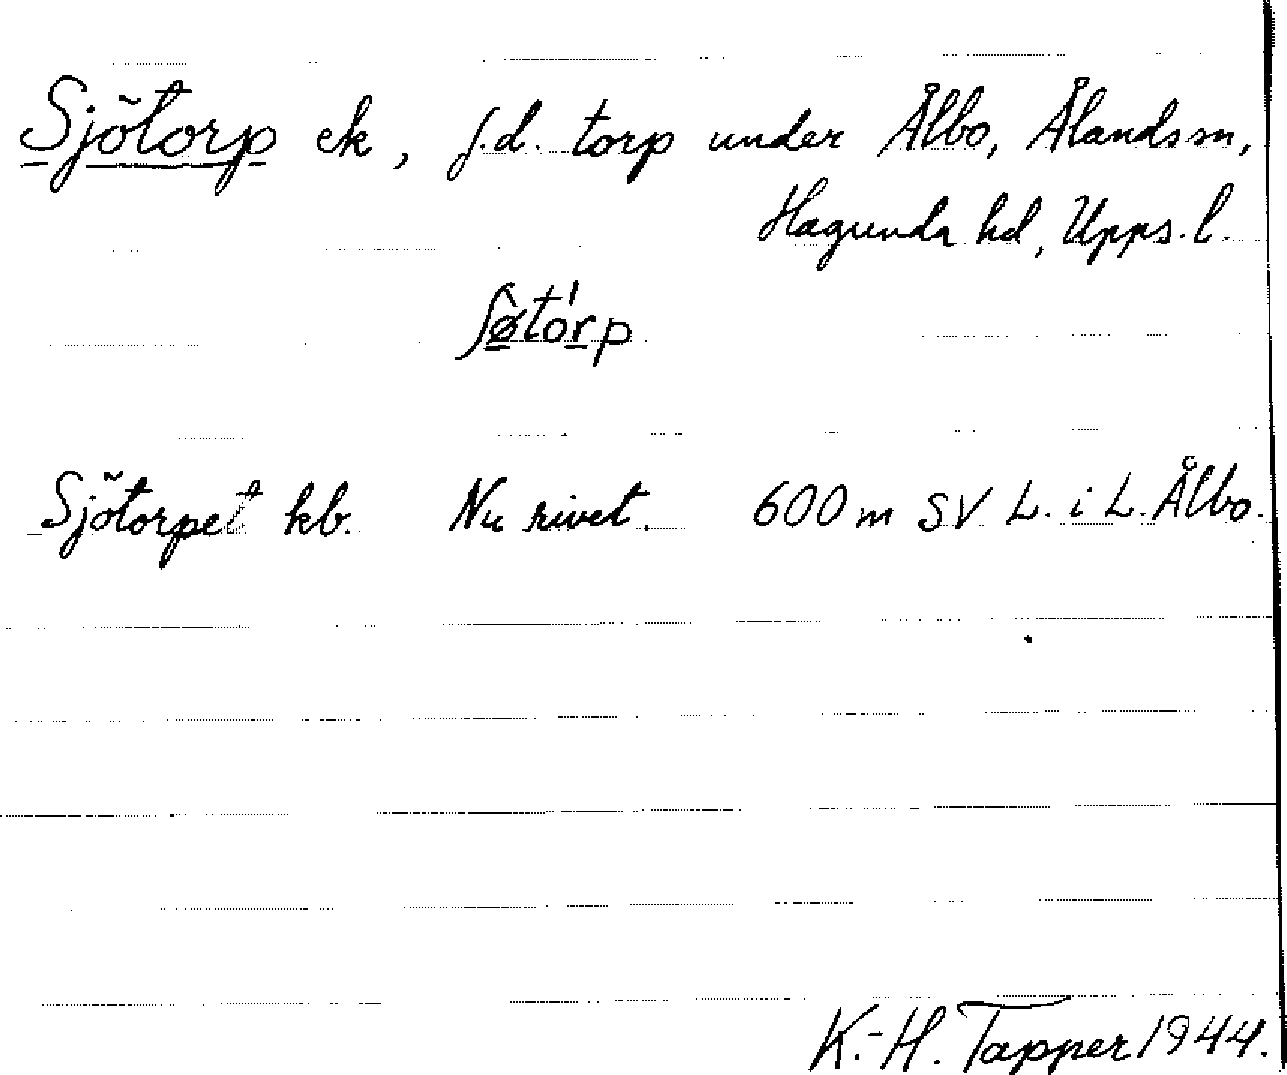 Sjötorp ek, f.d. torp under Ålbo, Ålands sn,
Hagunda hd, Upps. l.
ʃø̂tórp
Sjötorpet kb. Nu rivet. 600 m SV L. i L. Ålbo.
K.-H. Tapper 1944.